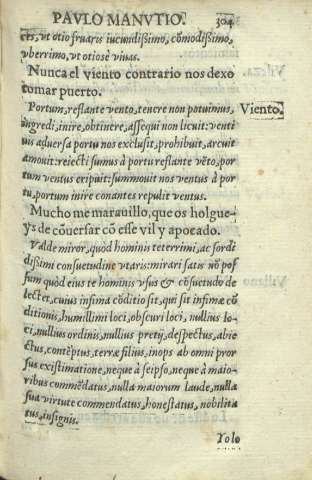 PAVLO MANVTIO. 304
ces, vt otio fruaris iucundißimo, cõmodißimo,
vberrimo, vt otiosè viuas.
Nunca el viento contrario nos dexo
tomar puerto.
Portum, reflante vento, tenere non potuimus, Viento.
ingredi, inire, obtinere, assequi non licuit: venti
vis aduersa portu nos exclusit, prohibuit, arcuit
amouit: reiecti sumus à portu reflante vẽto, por
tum ventus eripuit: summouit nos ventus à por
tu, portum inire conantes repulit ventus.
Mucho me marauillo, que os holgue
ys de cõuersar cõ esse vil y apocado.
Valde miror, quod hominis teterrimi, ac sordi
dißimi consuetudine vtaris: mirari satis nõ pos
sum quòd eius te hominis vsus & cõsuetudo de
lectet, cuius infima cõditio sit, qui sit infimæ cõ
ditionis, humillimi loci, obscuri loci, nullius lo-
ci, nullius ordinis, nullius pretij, despectus, abie
ctus, contẽptus, terræ filius, inops ab omni pror
sus existimatione, neque à seipso, neque à maio-
ribus commẽdatus, nulla maiorum laude, nulla
sua virtute commendatus, honestatus, nobilita
tus, insignis.
Yolo